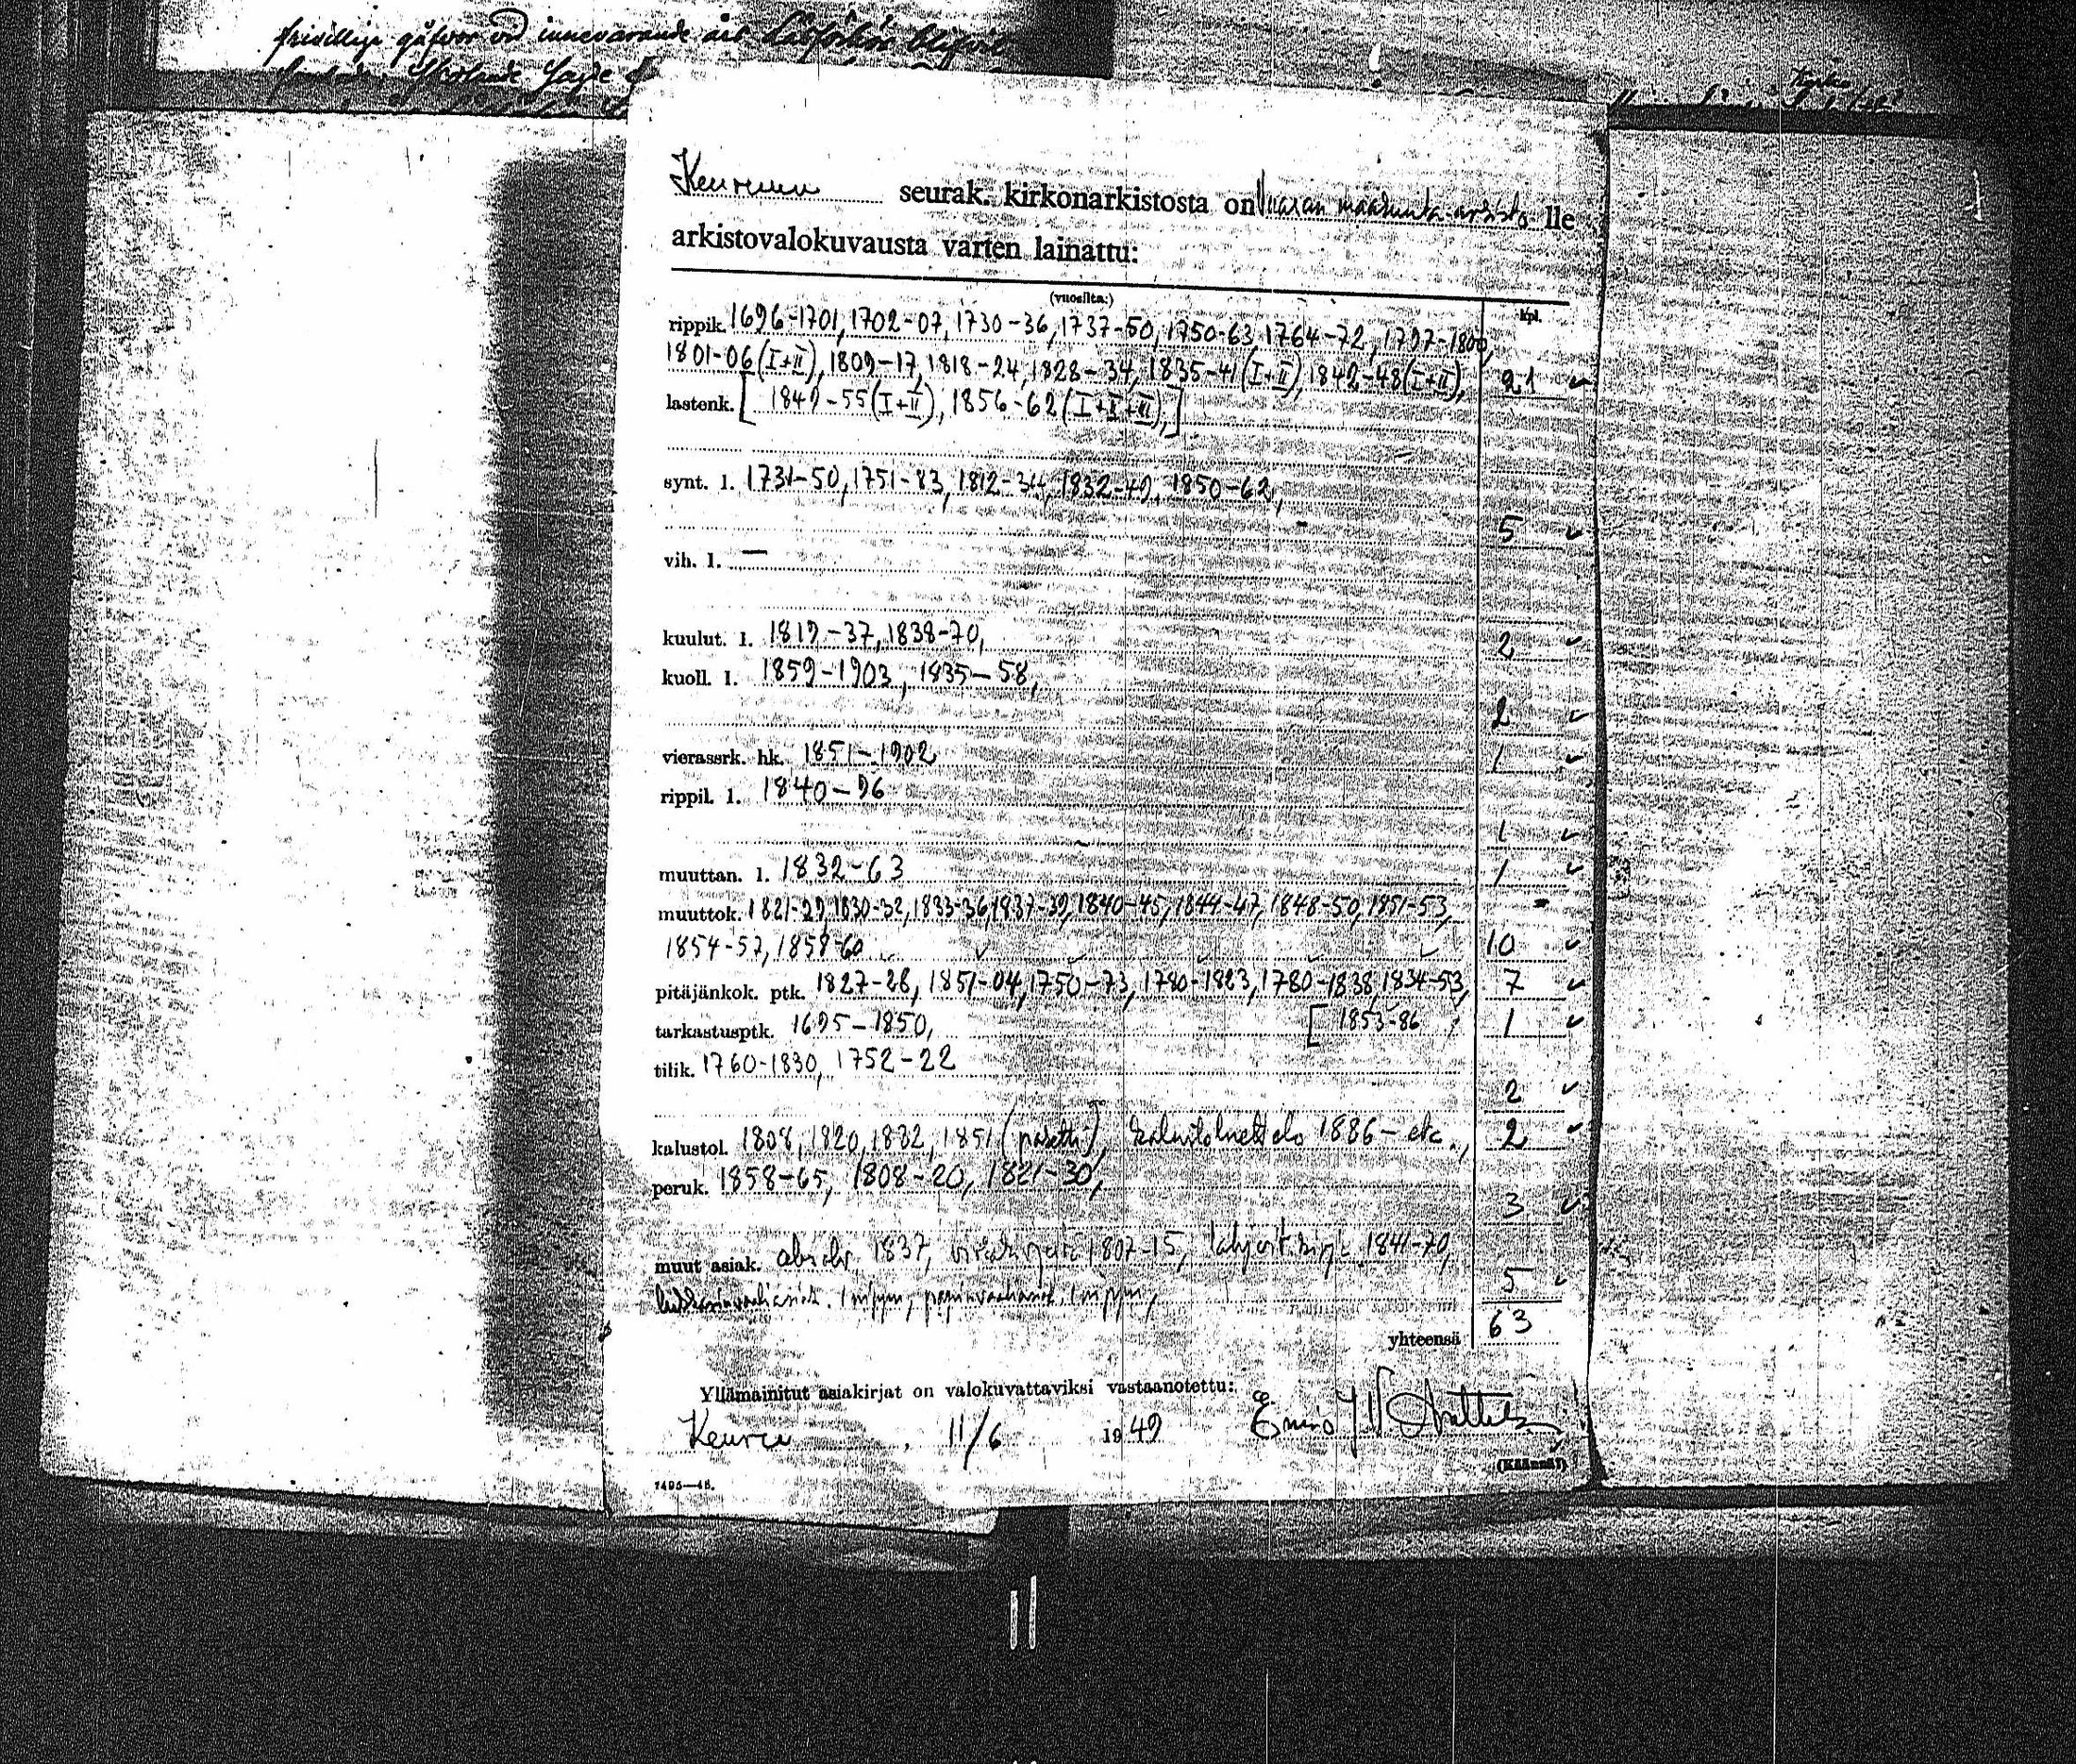 frivillige gåfvor vid innevarande års Läsförhör blifvit
Keuruun seurak. kirkonarkistosta on Vaasan maakunta-arkisto lle
arkistovalokuvausta varten lainattu:
(vuosilta:) kpl.
rippik. 1696-1701, 1702-07, 1730-36, 1737-50, 1750-63, 1764-72, 1797-1800,
1801-06 (I+II), 1809-17, 1818-24, 1828-34, 1835-41 (I+II), 1842-48 (I+II), 21 ✓
lastenk. [1849-55 (I+II), 1856-62 (I+I+III),]
synt. l. 1731-50, 1751-83, 1812-34, 1832-49, 1850-62,
5 ✓
vih. l. —
kuulut. l. 1819-37, 1838-70, 2 ✓
kuoll. l. 1859-1903, 1835-58,
2 ✓
vierassrk. hk. 1851-1902 1 ✓
rippil. l. 1840-96
1 ✓
muuttan. l. 1832-63 1 ✓
muuttok. 1821-29, 1830-32, 1833-36, 1837-39, 1840-45, 1844-47, 1848-50, 1851-53,
1854-57, 1858-60 10 ✓
pitäjänkok. ptk. 1827-28, 1851-04, 1750-73, 1780-1823, 1780-1838, 1834-53, 7 ✓
tarkastusptk. 1695-1850, [1853-86 1 ✓
tilik. 1760-1830, 1752-22
2 ✓
kalustol. 1808, 1820, 1832, 1851 (paketti), kalustoluettelo 1886- etc., 2 ✓
peruk. 1858-65, 1808-20, 1821-30,
3 ✓
muut asiak. 1837, 1807-15, 1841-70,
5 ✓
yhteensä 63
Yllämainitut asiakirjat on valokuvattaviksi vastaanotettu:
Keuruu 11/6 1949
(Käännä!)
1495—48.